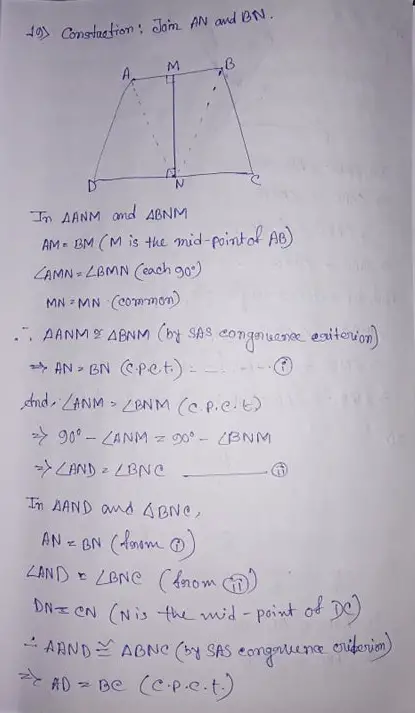 19) Construction: Join AN and BN.
A M B
D N C
In ∆ANM and ∆BNM
AM = BM (M is the mid-point of AB)
∠AMN = ∠BMN (each 90°)
MN = MN (common)
∴ ∆ANM ≅ ∆BNM (by SAS congruence criterion)
⇒ AN = BN (C.P.C.t.) - - - - - - (i)
And, ∠ANM = ∠BNM (C.P.C.t)
⇒ 90° - ∠ANM = 90° - ∠BNM
⇒ ∠AND = ∠BNC ———— (ii)
In ∆AND and ∆BNC,
AN = BN (from (i))
∠AND = ∠BNC (from (ii))
DN = CN (N is the mid-point of DC)
∴ ∆AND ≅ ∆BNC (by SAS congruence criterion)
⇒ AD = BC (C.P.C.t.)